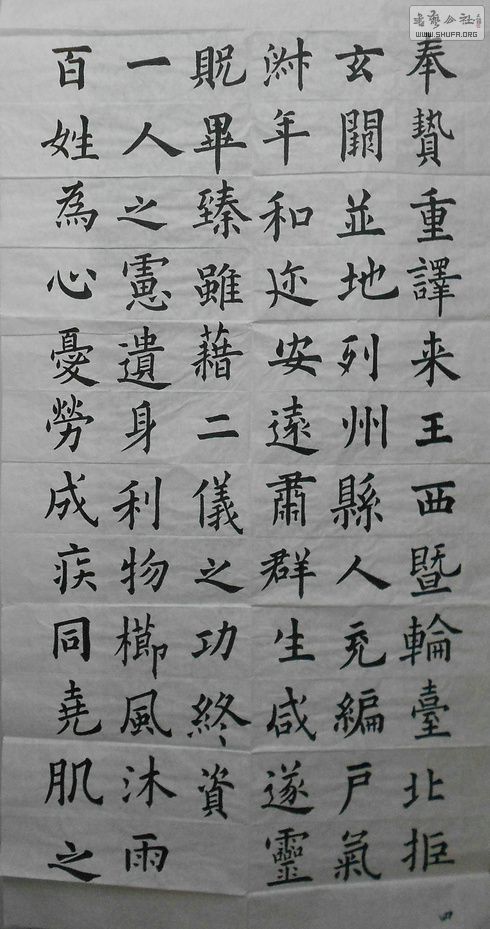 奉贄重譯来王西暨輪臺北拒
玄闕並地列州縣人充編戶氣
淑年和迩安遠肅群生咸遂靈
貺畢臻雖藉二儀之功終資
一人之慮遺身利物櫛風沐雨
百姓為心憂勞成疾同堯肌之
四
書藝公社
WWW.SHUFA.ORG